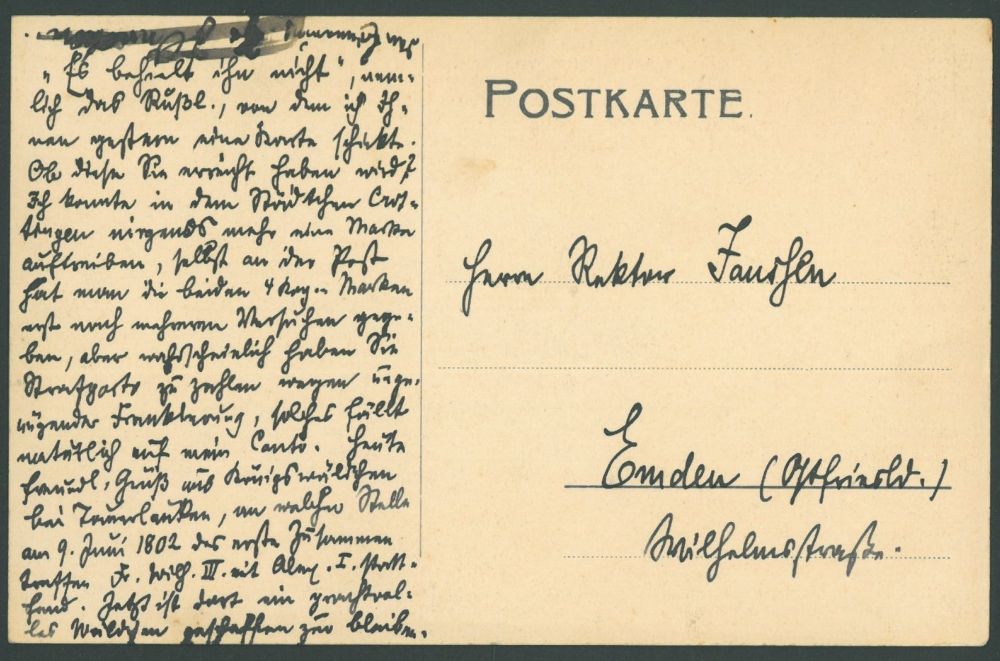 „Es behielt ihn nicht", näm-
lich das Rußl., von dem ich Ih-
nen gestern eine Karte schickte.
Ob diese Sie erreicht haben wird?
Ich konnte in dem Städtchen Crot-
tingen nirgends mehr eine Marke
auftreiben, selbst an der Post
hat man die beiden 4 Kop.- Marken
erst nach mehreren Versuchen gege-
ben, aber wahrscheinlich haben Sie
Strafporto zu zahlen wegen unge-
nügender Frankierung, solches fällt
natürlich auf mein Conto. Heute
freundl. Gruß aus Königswäldchen
bei Tauerlauken, an welcher Stelle
am 9. Juni 1802 das erste Zusammen
treffen Fr. Wilh. III. mit Alex. I. statt-
fand. Jetzt ist dort ein prachtvol-
les Wäldchen geschaffen zur bleiben-
POSTKARTE.
Herrn Rektor
Emden (Ostfriesld.)
Wilhelmsstraße.